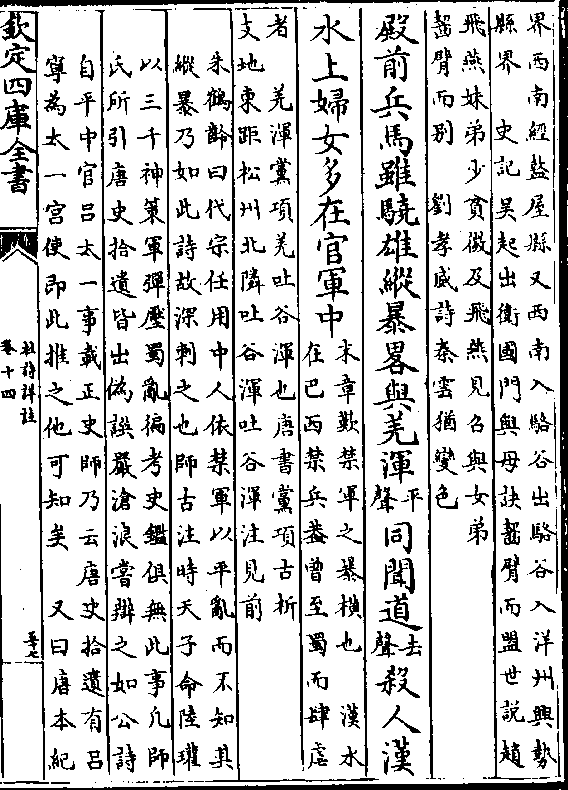 界西南經盩厔縣又西南入駱谷出駱谷入洋州興勢
縣界　史記吴起出衛國門與母訣齧臂而盟世説趙
飛燕妹弟少貧微及飛燕見召與女弟
齧臂而别　劉孝威詩秦雲猶變色
殿前兵馬雖驍雄縱暴畧與羌渾平聲同聞道去聲殺人漢
水上婦女多在官軍中
末章歎禁軍之暴横也　漢水
在巴西禁兵葢曾至蜀而肆虐
者　羌渾黨項羌吐谷渾也唐書黨項古析
支地東距松州北隣吐谷渾吐谷渾注見前
朱鶴齡曰代宗任用中人依禁軍以平亂而不知其
縱暴乃如此詩故深刺之也師古注時天子命陸瓘
以三千神策軍彈壓蜀亂徧考史鑑俱無此事凡師
氏所引唐史拾遺皆出偽譔嚴滄浪嘗辯之如公詩
自平中官吕太一事載正史師乃云唐史拾遺有吕
寧為太一宫使即此推之他可知矣　又曰唐本紀
欽定四庫全書
杜詩詳註
卷十四